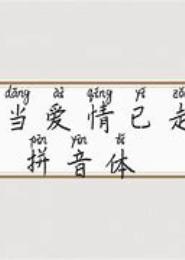 dāng ài qíng yǐ zǒ
当爱情已走
pīn yīn tǐ
拼音体